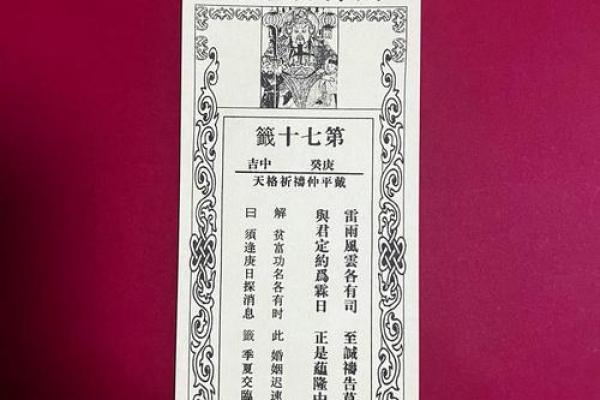 第七十籤
庚癸 中吉
戴平仲禱祈格天
雷雨風雲各有司 至誠禱告
與君定約爲霖日 正是蘊隆中
解 贫富功名各有时 此 婚姻迟速
曰 須逢庚日探消息 籤 季夏交臨